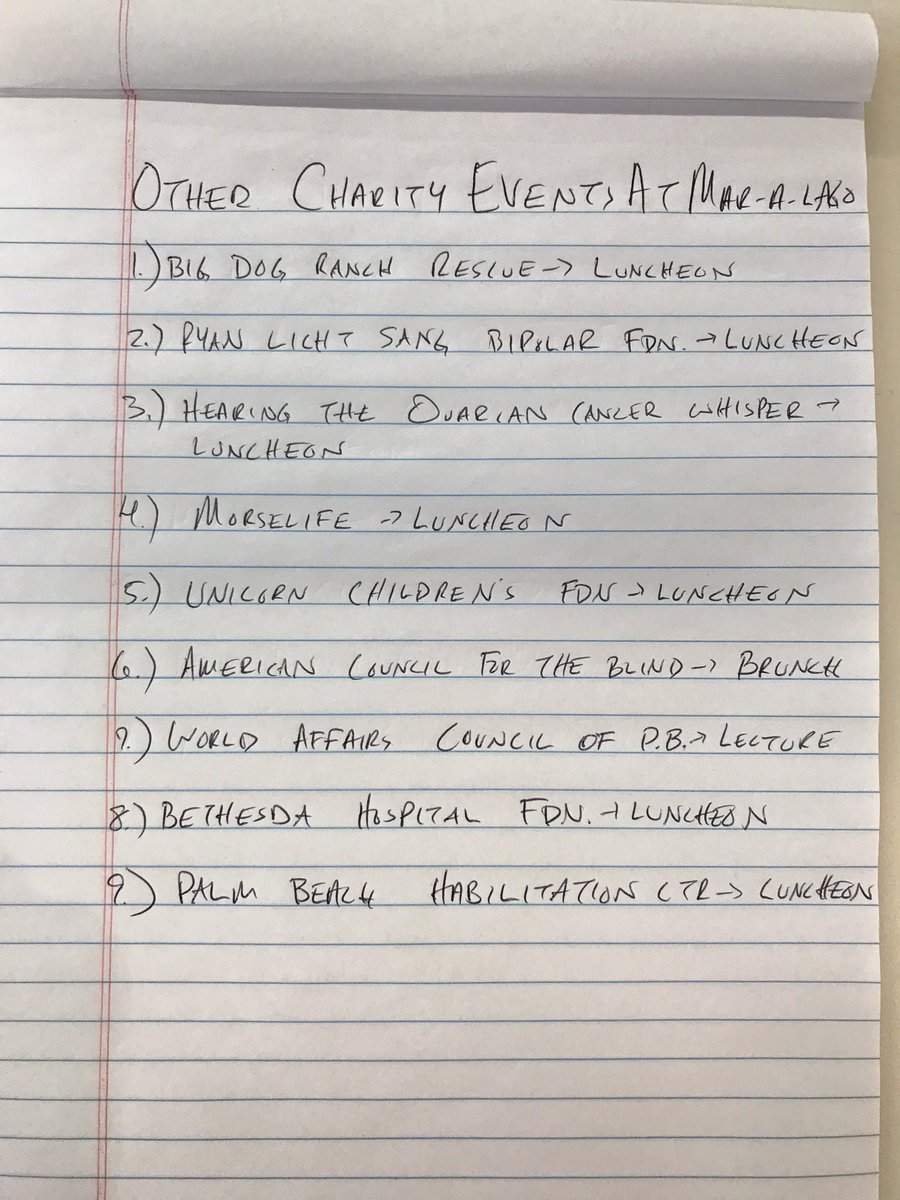 OTHER CHARITY EVENTS AT MAR-A-LAGO
1.) BIG DOG RANCH RESCUE → LUNCHEON
2.) RYAN LICHT SANG BIPOLAR FDN. → LUNCHEON
3.) HEARING THE OVARIAN CANCER WHISPER →
LUNCHEON
4.) MORSELIFE → LUNCHEON
5.) UNICORN CHILDREN'S FDN → LUNCHEON
6.) AMERICAN COUNCIL FOR THE BLIND → BRUNCH
7.) WORLD AFFAIRS COUNCIL OF P.B. → LECTURE
8.) BETHESDA HOSPITAL FDN. → LUNCHEON
9.) PALM BEACH HABILITATION CTR → LUNCHEON